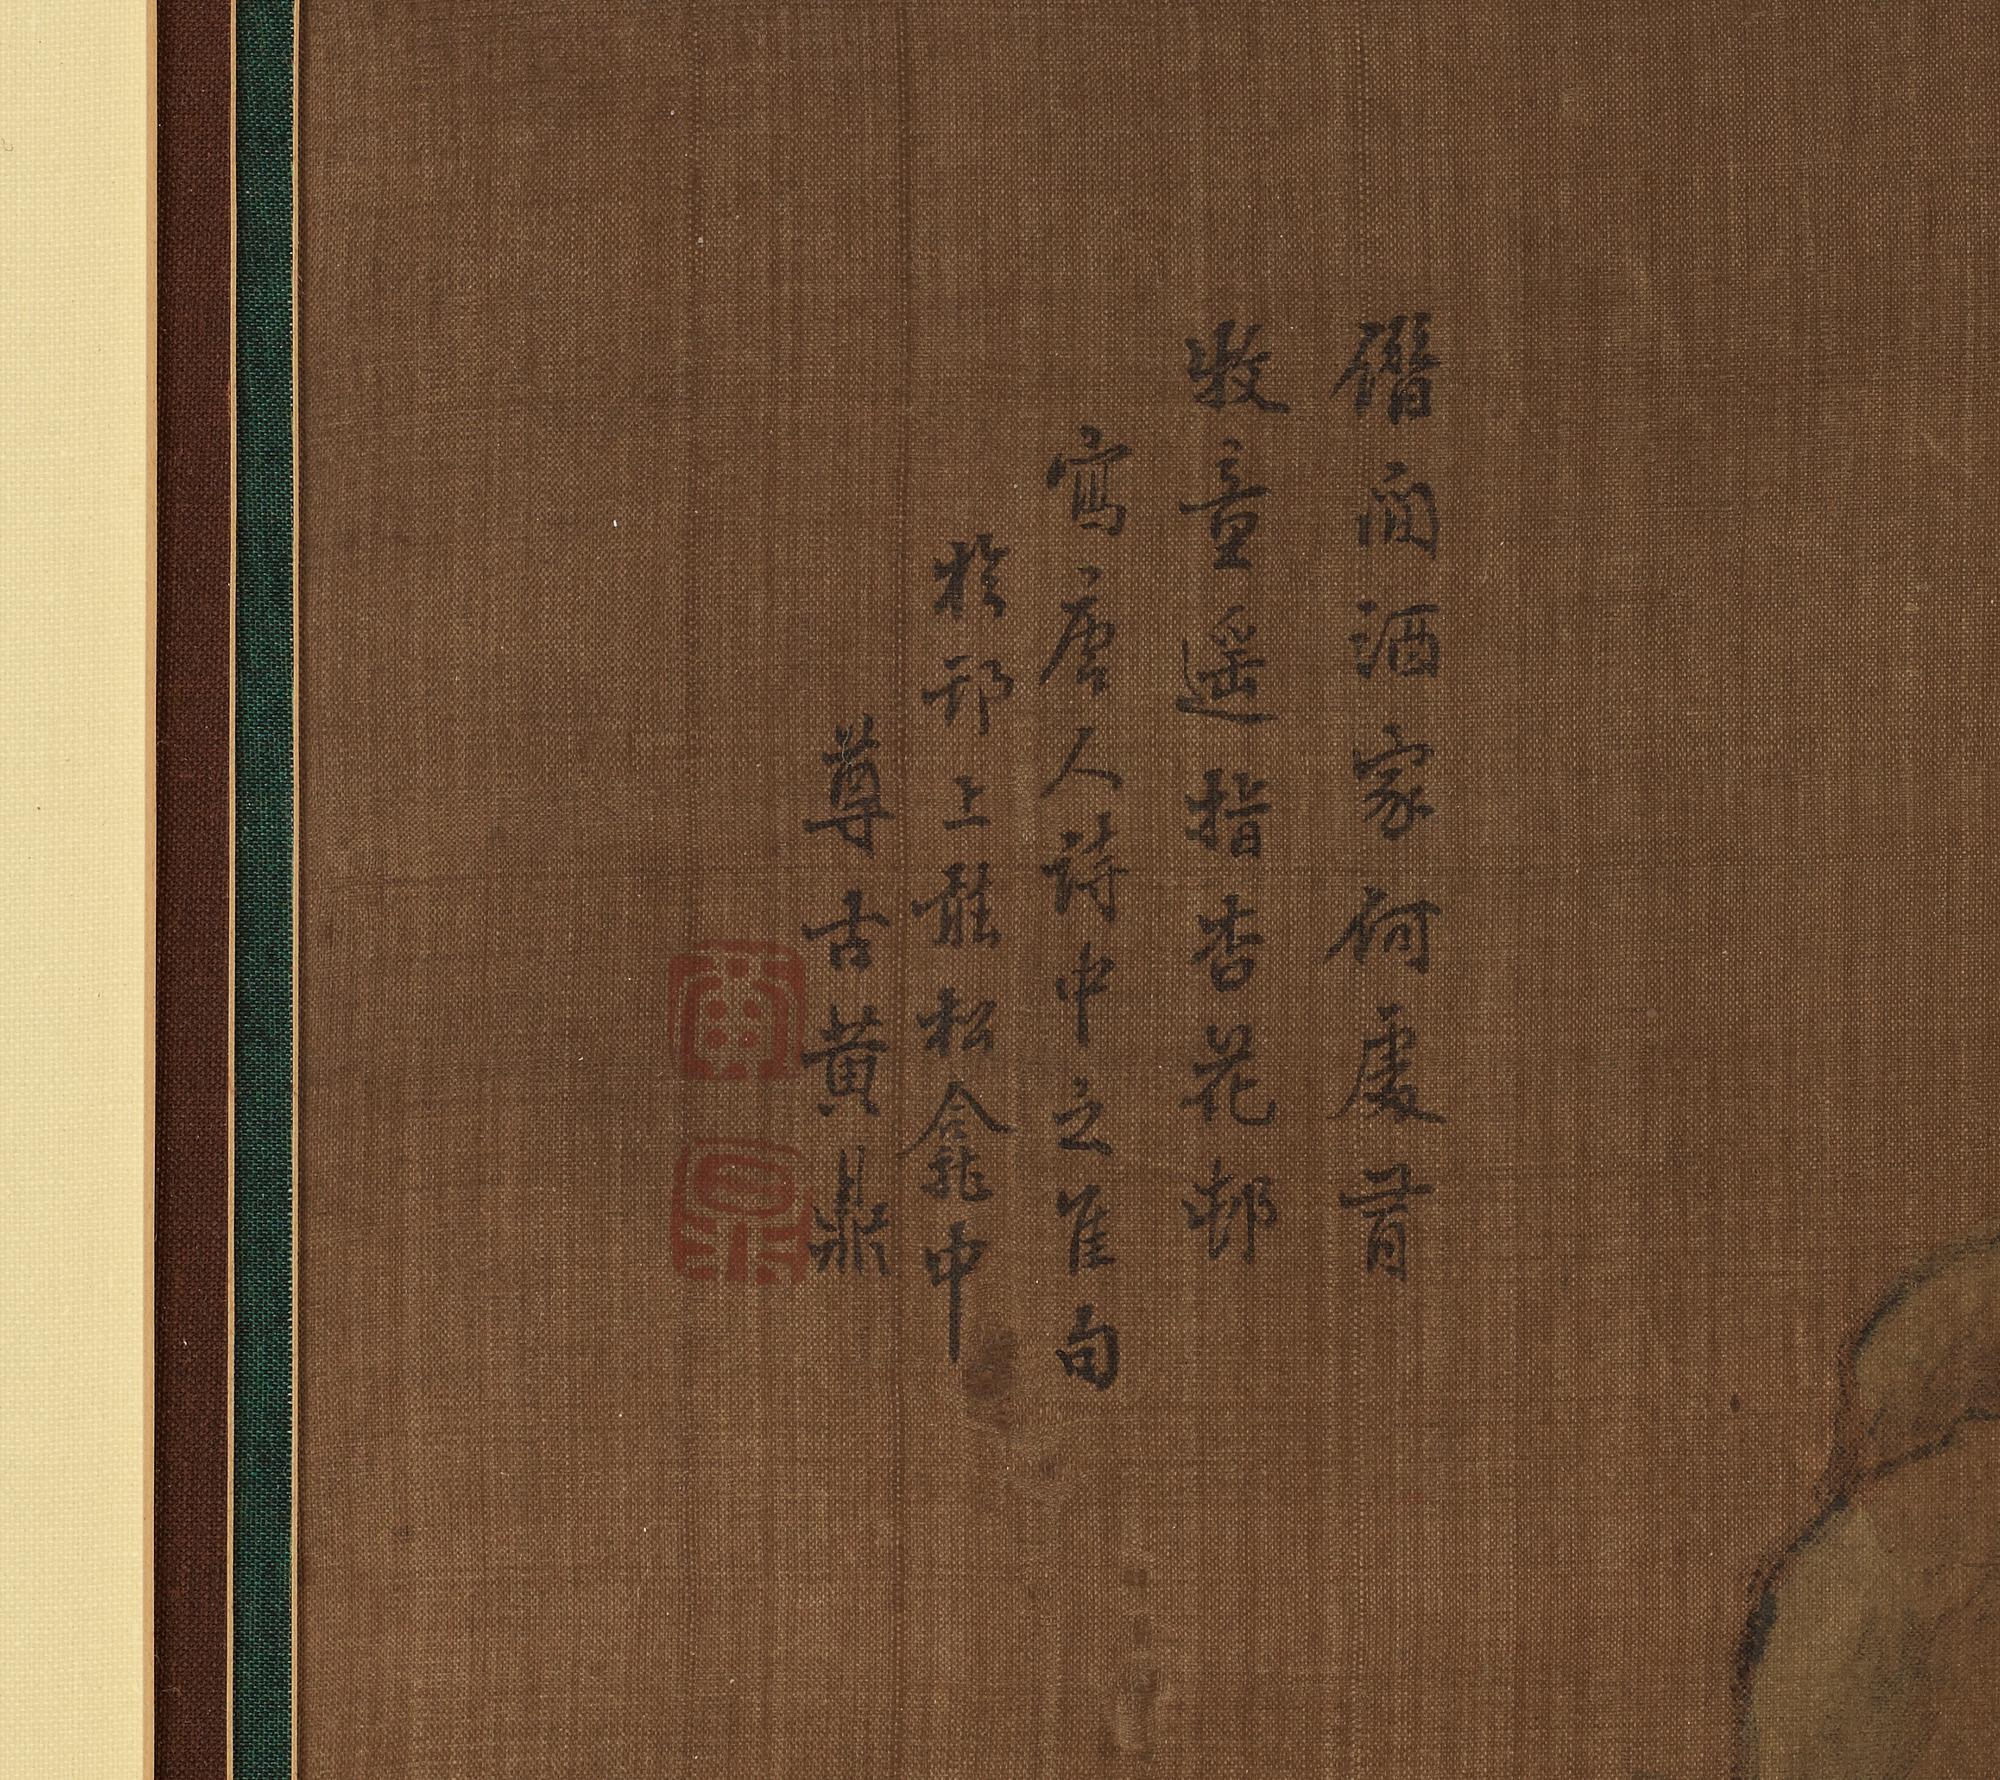 借問酒家何處有
牧童遙指杏花邨
寫唐人詩中之佳句
於邗上聽松龕中
尊古黃鼎
黃
鼎